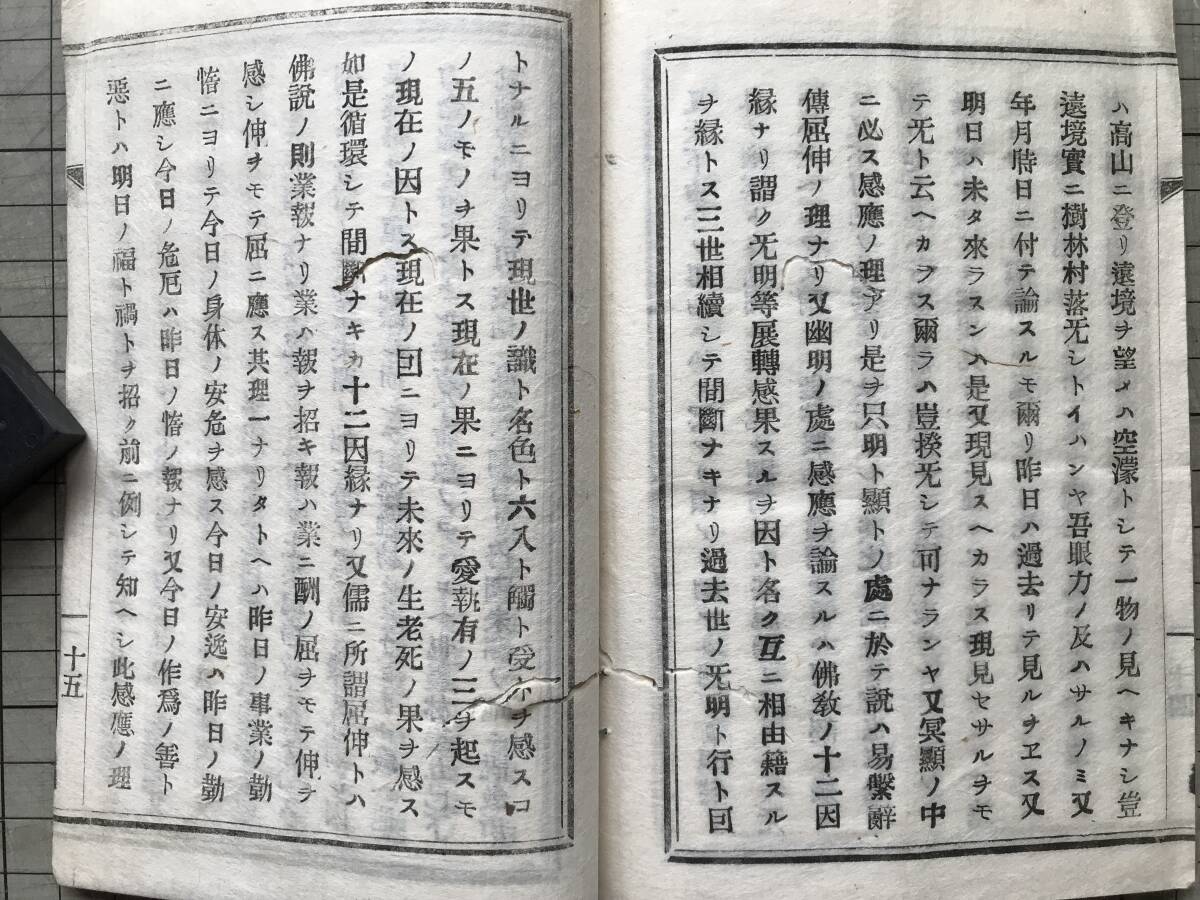 ハ高山ニ登リ遠境ヲ望メハ空濛トシテ一物ノ見ヘキナシ豈
遠境實ニ樹林村落无シトイハンヤ吾眼力ノ及ハサルノミ又
年月時日ニ付テ論スルモ爾リ昨日ハ過去リテ見ルヲヱス又
明日ハ未タ來ラスンハ是又現見スヘカラス現見セサルヲモ
テ无ト云ヘカラス爾ラハ豈揆无シテ可ナランヤ又冥顯ノ中
ニ必ス感應ノ理アリ是ヲ只明ト顯トノ處ニ於テ説ハ易繫辭
傳屈伸ノ理ナリ又幽明ノ處ニ感應ヲ論スルハ佛敎ノ十二因
縁ナリ謂ク无明等展轉感果スルヲ因ト名ク互ニ相由籍スル
ヲ縁トス三世相續シテ間斷ナキナリ過去世ノ无明ト行ト回
トナルニヨリテ現世ノ識ト名色ト六入ト觸ト受ヲ感スコ
ノ五ノモノヲ果トス現在ノ果ニヨリテ愛執有ノ三ヲ起スモ
ノ現在ノ因トス現在ノ回ニヨリテ未來ノ生老死ノ果ヲ感ス
如是循環シテ間斷ナキカ十二因縁ナリ又儒ニ所謂屈伸トハ
佛說ノ則業報ナリ業ハ報ヲ招キ報ハ業ニ酬ノ屈ヲモテ伸ヲ
感シ伸ヲモテ屈ニ應ス其理一ナリタトヘハ昨日ノ事業ノ勤
惰ニヨリテ今日ノ身体ノ安危ヲ感ス今日ノ安逸ハ昨日ノ勤
ニ應シ今日ノ危厄ハ昨日ノ惰ノ報ナリ又今日ノ作爲ノ善ト
惡トハ明日ノ福ト禍トヲ招ク前ニ例シテ知ヘシ此感應ノ理
十五